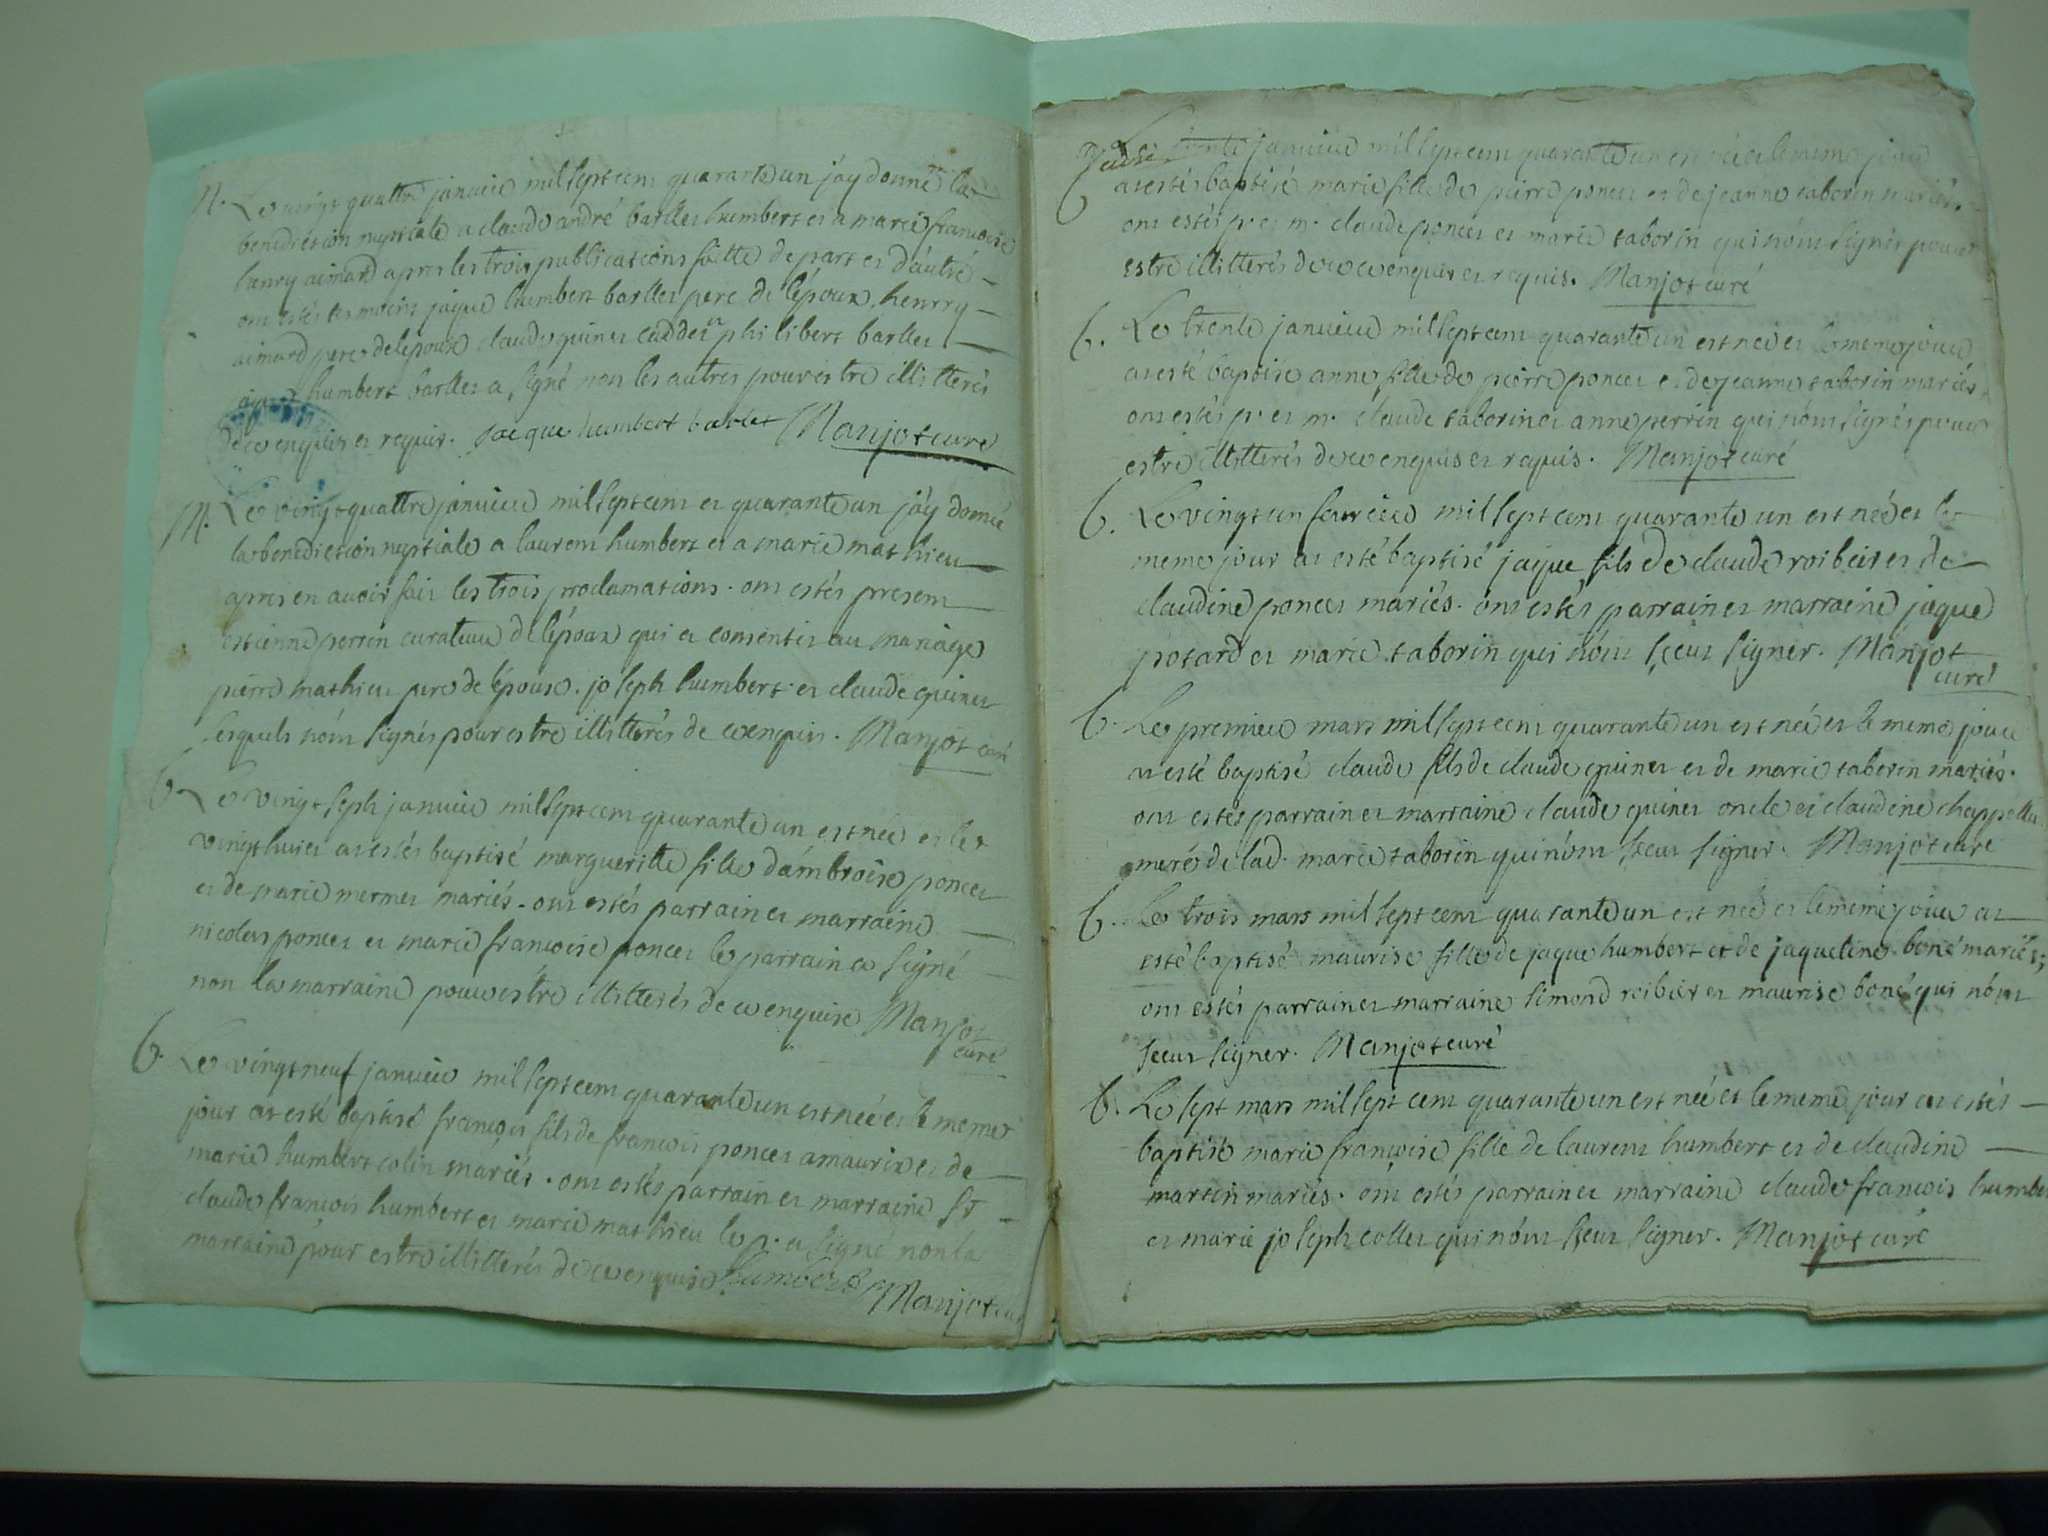 M. Le vingt quattre janvier mil sept cent quarante un j'ay donné la
benediction nuptiale a claude andré barllet humbert et a marie francoise
henry aimard apres les trois publications faitte de part et d'autre
ont estés tesmoins jaque humbert barllet pere de l'époux henrry
aimard pere de lepouse claude quinet caddet et philibert barllet
jaque humbert barllet a signé non les autres pour estre illitterés
de ce enquis et requis. Jacque humbert barlet Manjot curé
M. Le vingt quattre janvier mil sept cent et quarante un j'ay donné
la benediction nuptiale a laurent humbert et a marie mathieu
apres en avoir fait les trois proclamations. ont estés present
estienne perrin curateur de l'époux qui a consentit au mariage
pierre mathieu pere de l'épouse. joseph humbert et claude quinet
lesquels n'ont signés pour estre illitterés de ce enquis. Manjot curé
b. Le vingt seph janvier mil sept cent quarante un est née et le
vingt huict at estés baptisé margueritte fille d'ambroise poncet
et de marie mermet mariés. ont estés parrain et marraine
nicolas poncet et marie francoise poncet le parrain a signé
non la marraine pour estre illitterés de ce enquise Manjot
curé
b. Le vingt neuf janvier mil sept cent quarante un est née et le meme
jour at esté baptisé francois fils de francois poncet amaurix et de
marie humbert colin mariés. ont estés parrain et marraine Sr
claude francois humbert et marie mathieu le p. a signé non la
marraine pour estre illitterés de ce enquise humbert Manjot curé
b. Le trente janvier mil sept cent quarante un est née et le meme jour
at estés baptisé marie fille de pierre poncet et de jeanne taborin mariés.
ont estés p. et m. claude poncet et marie taborin qui n'ont signés pour
estre illitterés de ce enquis et requis. Manjot curé
b. Le trente janvier mil sept cent quarante un est née et le meme jour
at esté baptisé anne fille de pierre poncet et de jeanne taborin mariés
ont estés p. et m. claude taborin et anne perrin qui n'ont signés pour
estre illitterés de ce enquis et requis. Manjot curé
b. Le vingt un fevrier mil sept cent quarante un est née et le
meme jour at esté baptisé jaque fils de claude roibeit et de
claudine poncet mariés. ont estés parrain et marraine jaque
potard et marie taborin qui n'ont sceut signer. Manjot
curé
b. Le premier mars mil sept cent quarante un est née et le meme jour
at esté baptisé claude fils de claude quinet et de marie taborin mariés.
ont estés parrain et marraine claude quinet oncle et claudine chappellu
meré de lad. marie taborin qui n'ont sceut signer. Manjot curé
b. Le trois mars mil sept cent quarante un est née et le meme jour at
esté baptisé maurise fille de jaque humbert et de jaqueline boné mariés;
ont estés parrain et marraine simond roibeit et maurise boné qui n'ont
sceut signer. Manjot curé
b. Le sept mars mil sept cent quarante un est née et le meme jour at estés
baptisé marie françoise fille de laurent humbert et de claudine
martin mariés. ont estés parrain et marraine claude francois humbert
et marie joseph collet qui n'ont sceut signer. Manjot curé